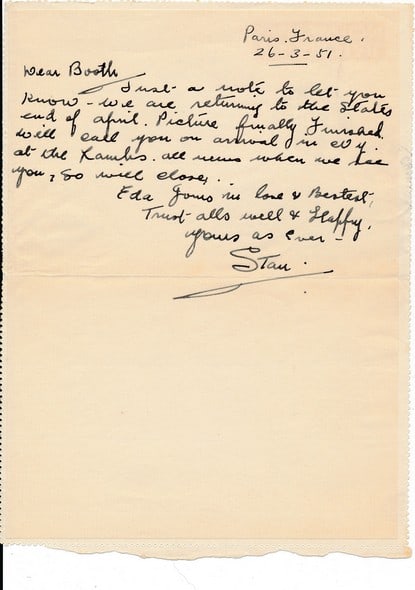 Paris. France.
26-3-51.
Dear Booth
Just a note to let you
know - we are returning to the States
end of april. Picture finally Finished.
will call you on arrival in N.Y.
at the Lambs. all news when we see
you, so will close,.
Eda Joins in love & Bestest,
Trust alls well & Happy.
yours as Ever -
Stan.